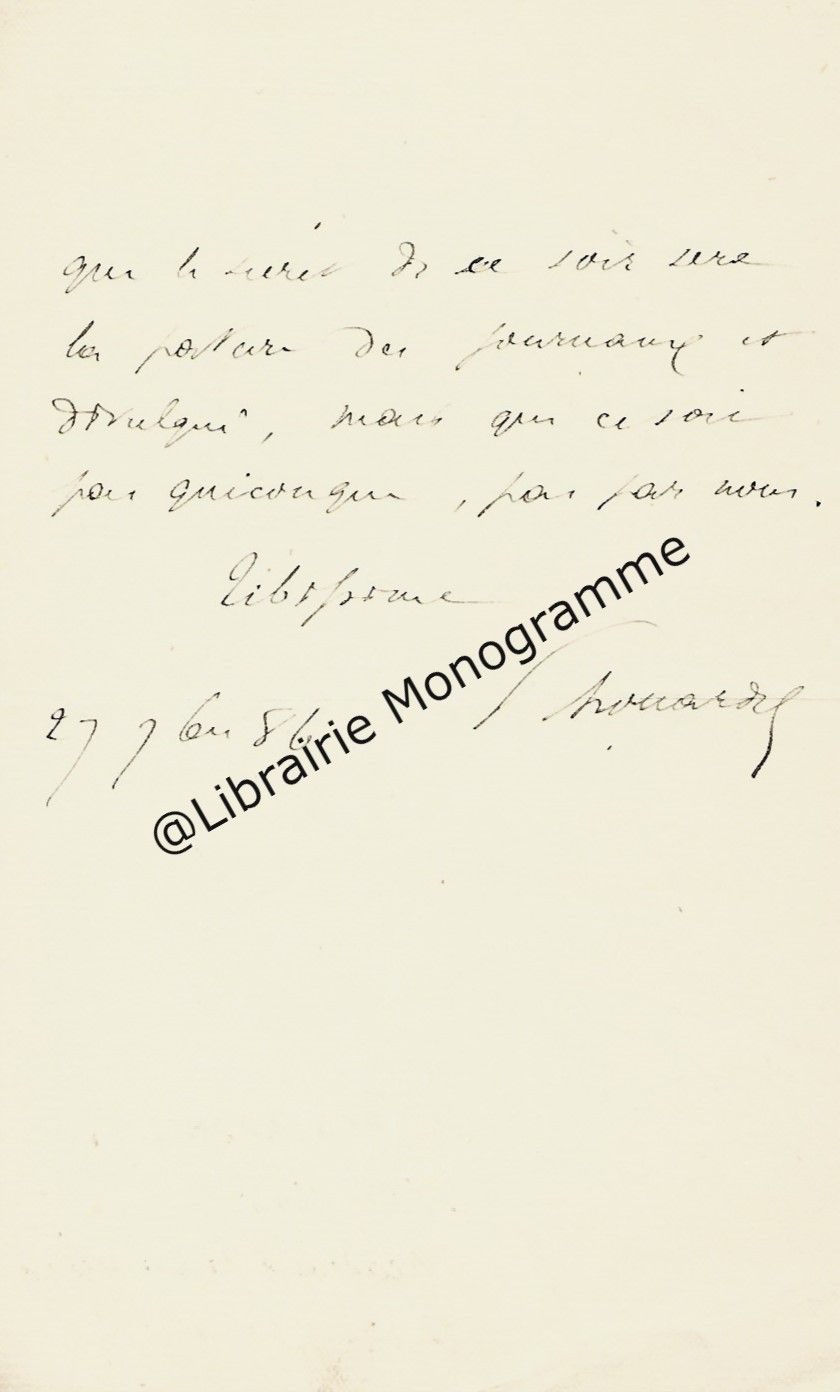 que le secret de ce soir sera
la pature des journaux et
divulgué, mais que ce soit
par quiconque, pas par nous.
Tibi
27 7bre 86 Brouardel
@Librairie Monogramme